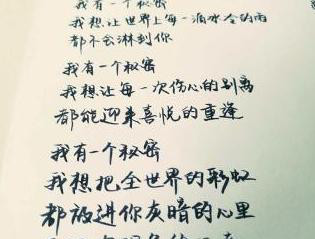 我有一个秘密
我想让世界上每一滴冰冷的雨
都不会淋到你
我有一个秘密
我想让每一次伤心的别离
都能迎来喜悦的重逢
我有一个秘密
我想把全世界的彩虹
都放进你灰暗的心里